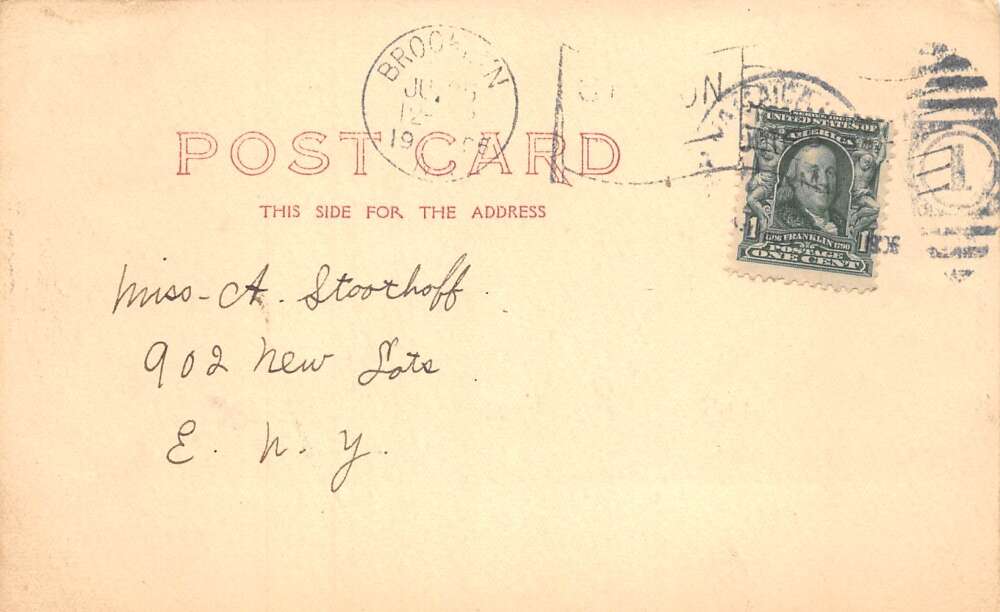 BROOKLYN
POST CARD
THIS SIDE FOR THE ADDRESS
UNITED STATES OF
AMERICA
1 FRANKLIN 1790 1
POSTAGE
ONE CENT
1
Miss - A. Stoothoff.
902 New Lots
E. N. Y.